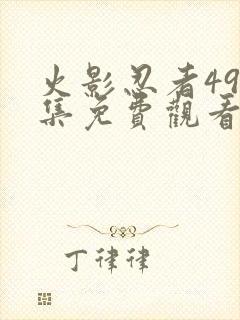 火影忍者49
集免費觀看
丁律律